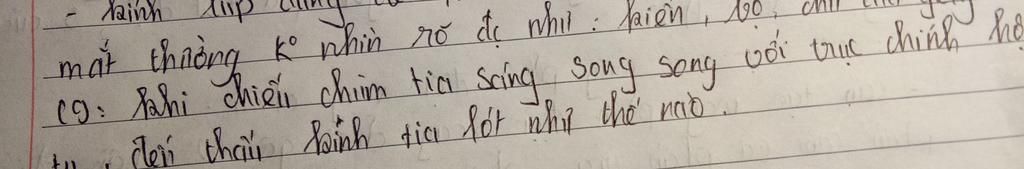 - kính lúp dùng
mắt thường ko nhìn rõ đc như : kiến, bọ,
C9: khi chiếu chùm tia sáng song song với trục chính
đến thấu kính tia lót như thế nào.